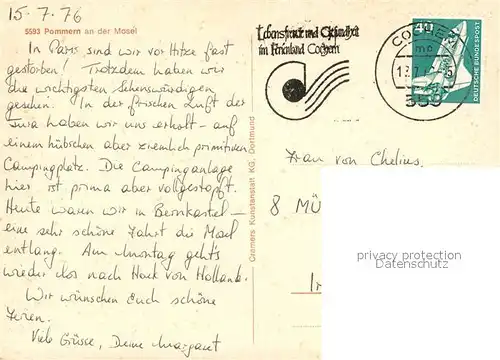 15-7-76
5593 Pommern an der Mosel
In Paris sind wir vor Hitze fast
gestorben! Trotzdem haben wir
die wichtigsten Sehenswürdigen
gesehen. In der frischen Luft der
Jura haben wir uns erholt - auf
einem hübschen aber ziemlich primitiven
Campingplatz. Die Campinganlage
hier ist prima aber vollgestopft.
Heute waren wir in Bernkastel -
eine sehr schöne Fahrt die Mosel
entlang. Am Montag geht's
wieder los nach Hoek van Holland.
Wir wünschen Euch schöne
Ferien.
Viele Grüsse, Deine Margaret
Cramers Kunstanstalt KG, Dortmund
Lebensfreude und Gesundheit
im Ferienland Cochem
COCHEM
359
40
DEUTSCHE BUNDESPOST
Frau von Chelius
8 MÜ
privacy protection
Datenschutz